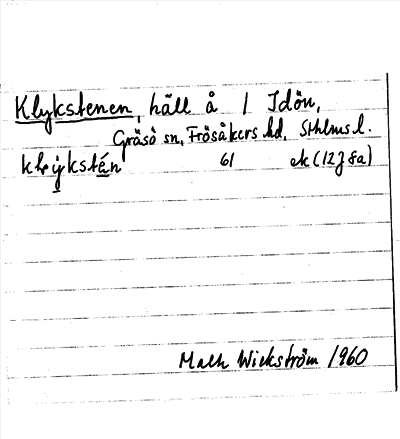 Klykstenen, häll å 1 Idön,
Gräsö sn, Frösåkers hd, Sthlms l.
61 ek (12J 8a)
Math Wickström 1960